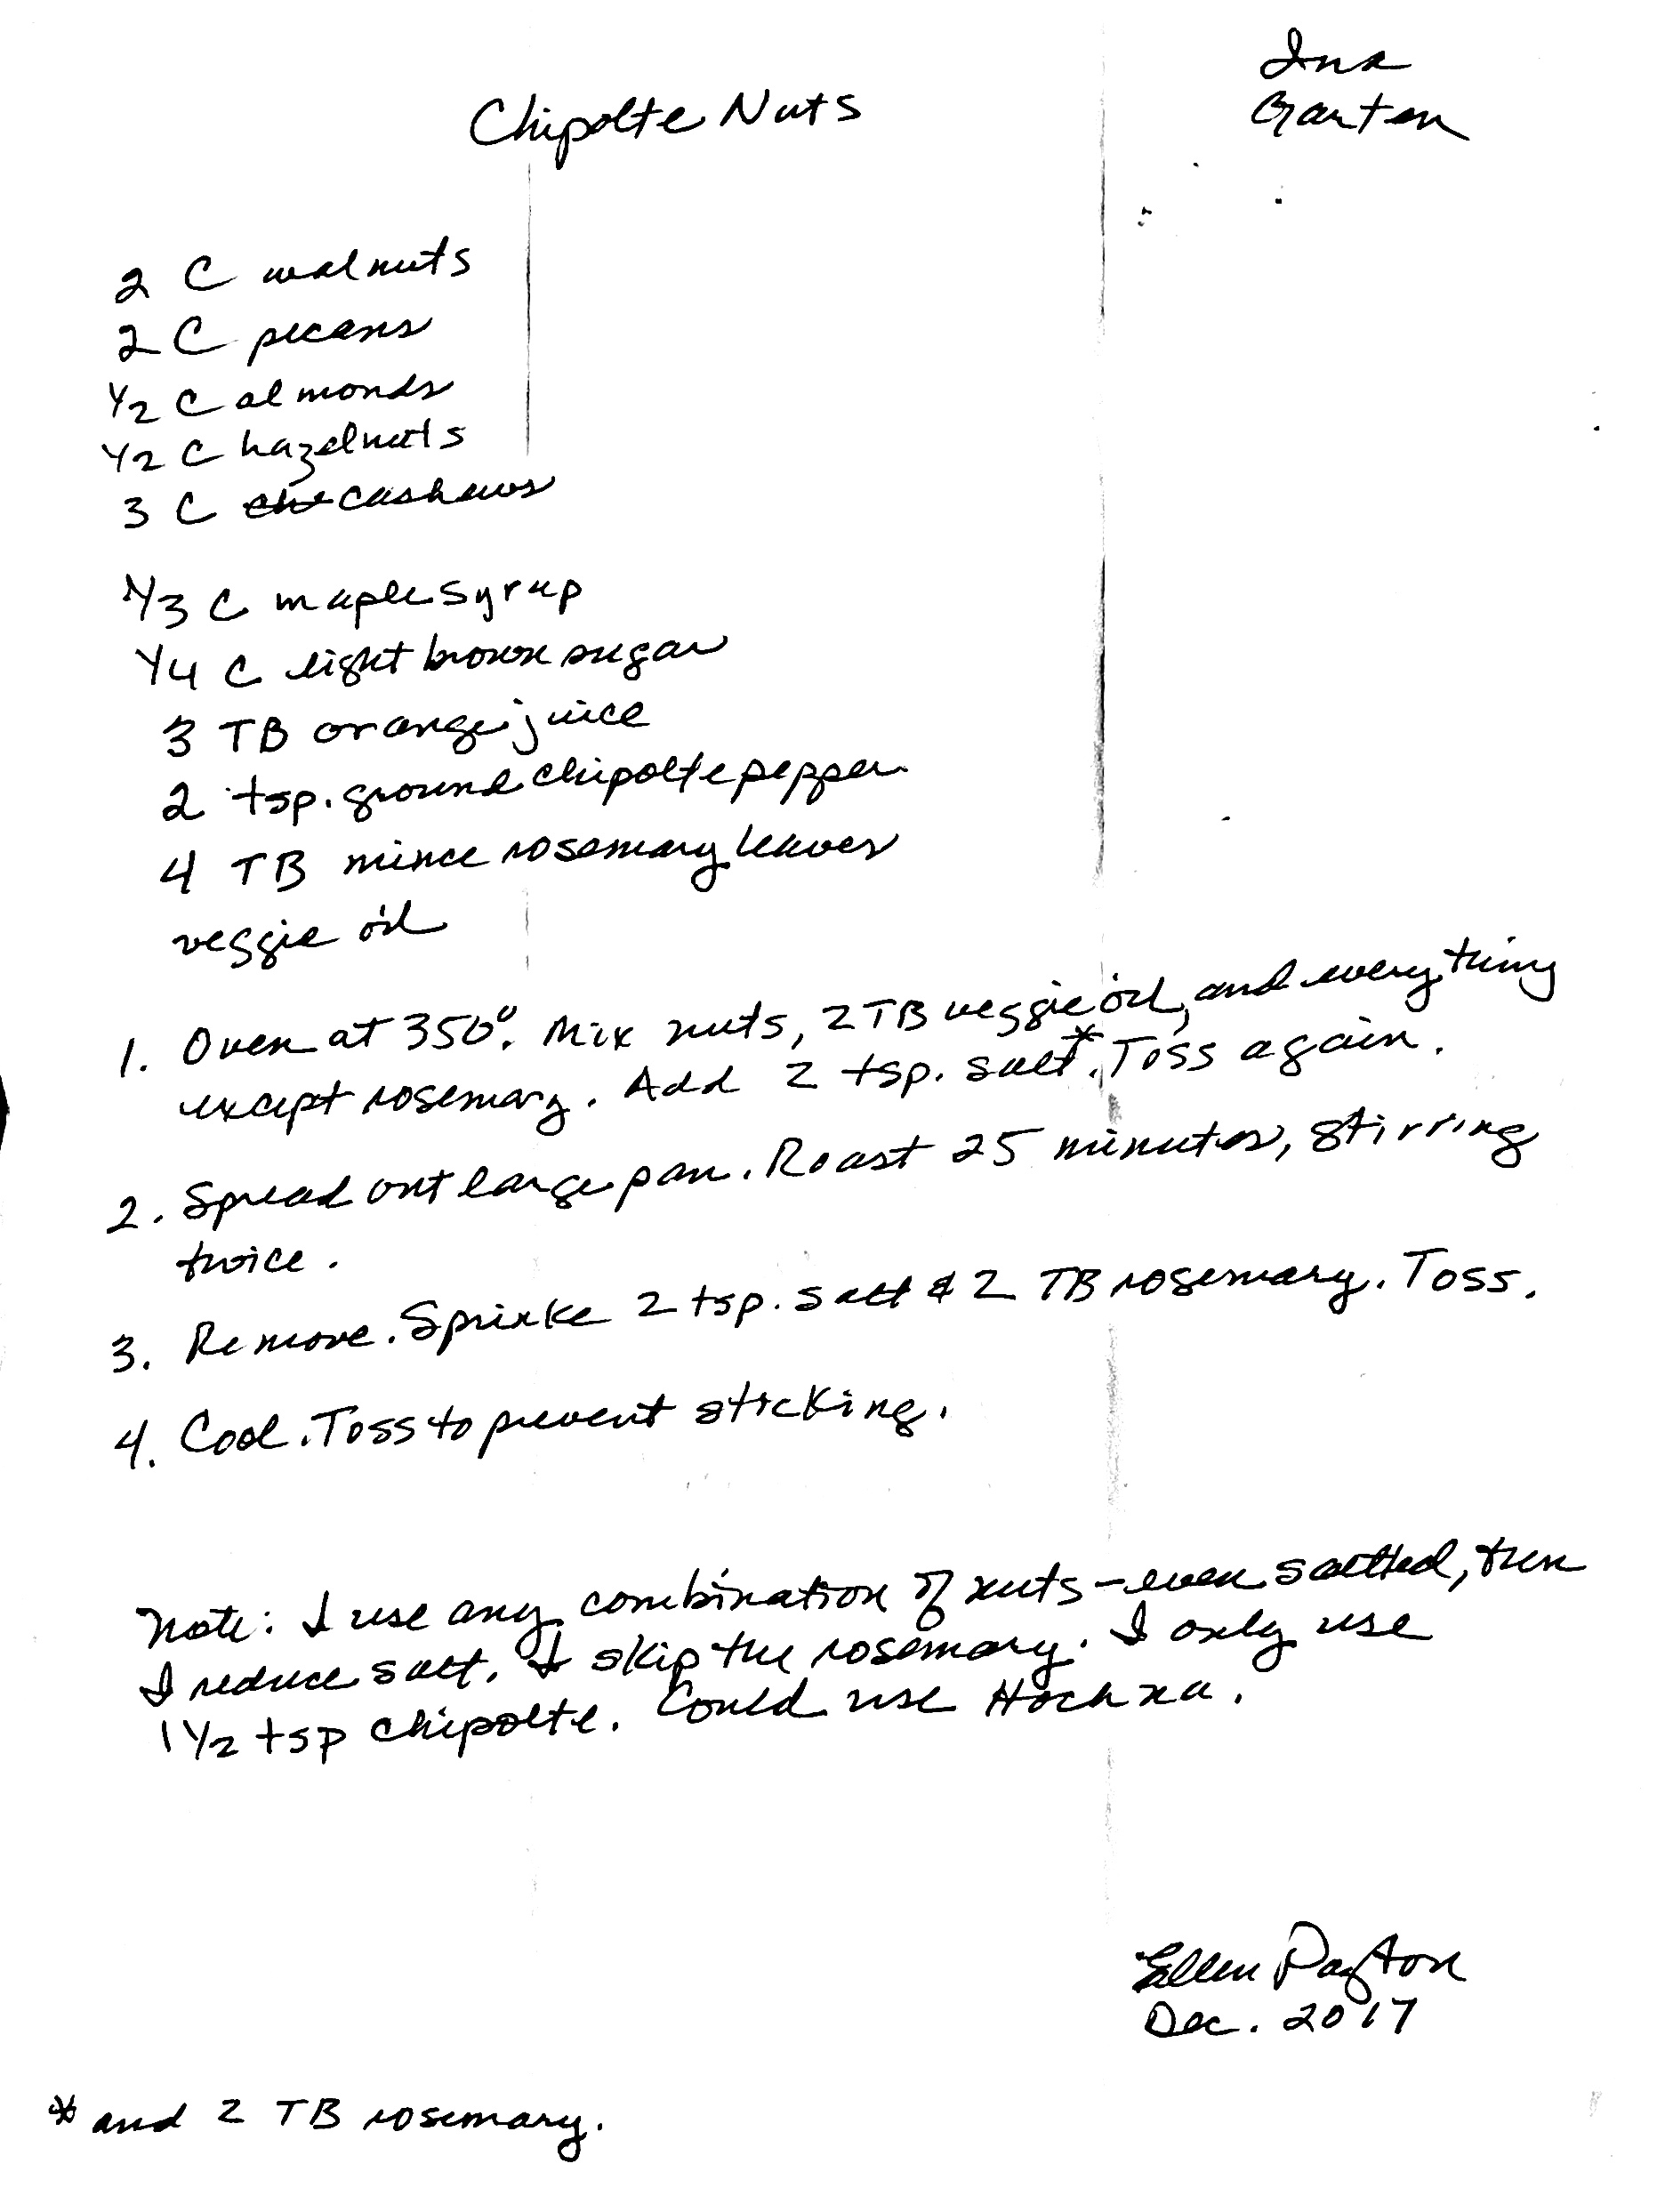 Ina
Garten
Chipolte Nuts
2 C walnuts
2 C pecans
1/2 C almonds
1/2 C hazelnuts
3 C cashews
1/3 C maple syrup
1/4 C light brown sugar
3 TB orange juice
2 tsp. ground chipolte pepper
4 TB mince rosemary leaves
veggie oil
1. Oven at 350°. Mix nuts, 2 TB veggie oil, and everything
except rosemary. Add 2 tsp. salt*. Toss again.
2. Spread ont large pan. Roast 25 minutes, stirring
twice.
3. Remove. Sprinke 2 tsp. salt & 2 TB rosemary. Toss.
4. Cool. Toss to prevent sticking.
Note: I use any combination of nuts - even saltted, then
I reduce salt. I skip the rosemary. I only use
1 1/2 tsp chipolte. Could use
Ellen Payton
Dec. 2017
* and 2 TB rosemary.